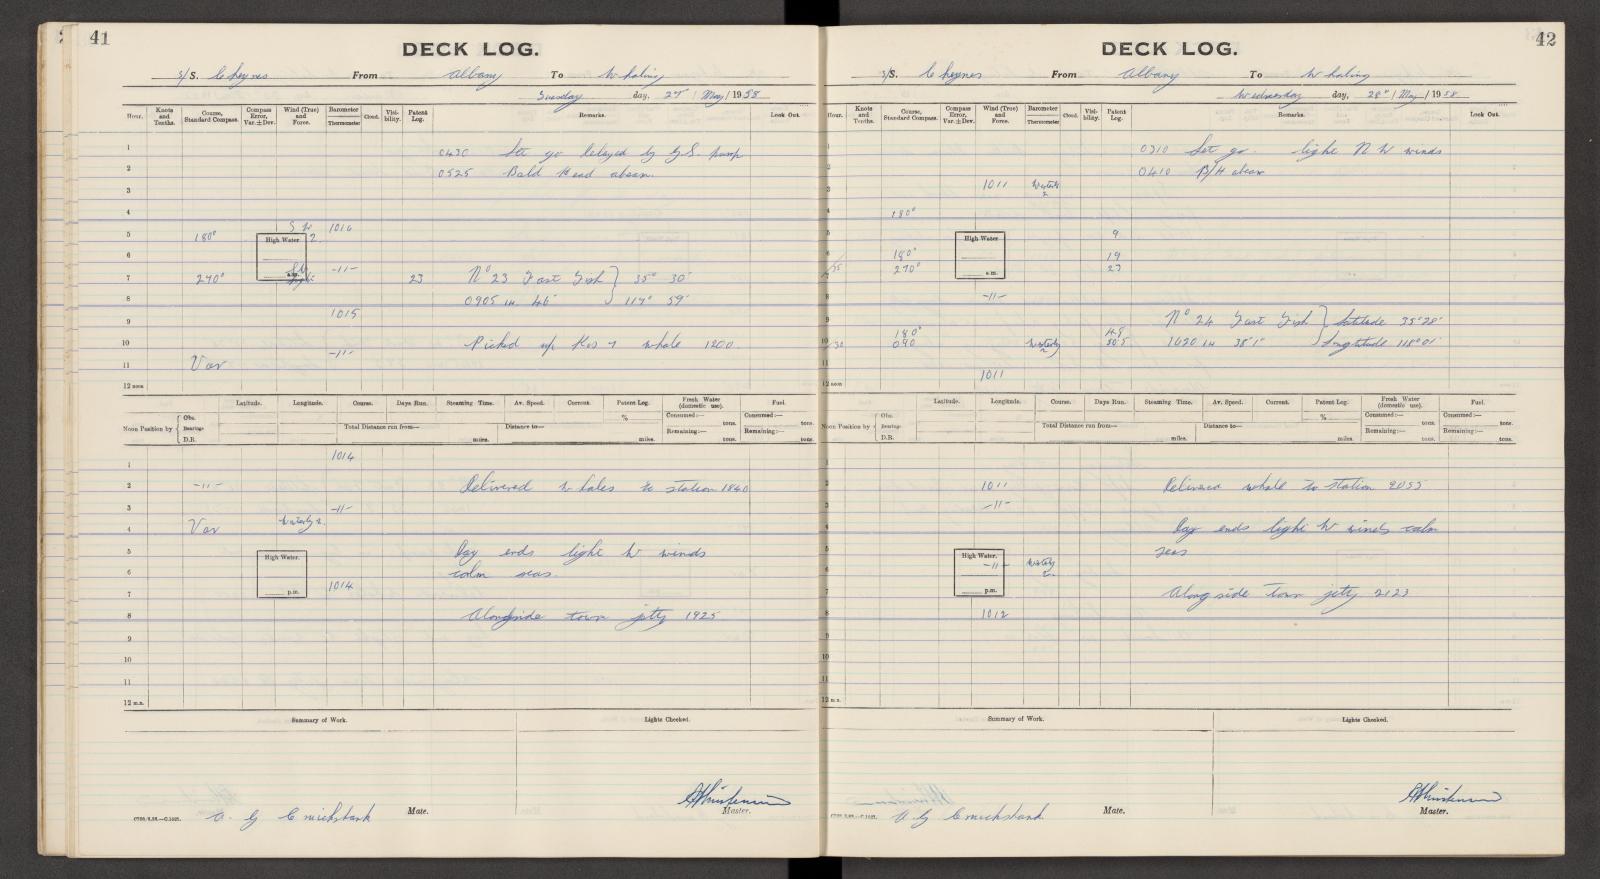 41
DECK LOG.
S/S. Cheynes From Albany To Whaling
Tuesday day, 27th / May / 1958
Hour. Knots and Tenths. Course, Standard Compass. Compass Error, Var. ± Dev. Wind (True) and Force. Barometer Thermometer Cloud. Visibility. Patent Log. Remarks. Look Out.
1 0430 Let go Delayed by G.S. pump
2 0525 Bald Head abeam.
3
4
S W 1016
5 180° High Water 2.
6
-11-
a.m.
7 270° 23 No 23 Fast Fish } 35° 30'
8 0905 in 46' 117° 59'
9 1015
10 Picked up Kos 7 whale 1200.
-11-
11 Var
12 noon
Latitude. Longitude. Course. Days Run. Steaming Time. Av. Speed. Current. Patent Log. Fresh Water (domestic use). Fuel.
Noon Position by { Obs. Bearings D.R. Total Distance run from— miles. Distance to— miles. % Consumed:— tons. Remaining:— tons. Consumed:— tons. Remaining:— tons.
1 1014
2 -11- Delivered whales to station 1840
3 -11-
4 Var Westerly 2.
5 High Water. Day ends light W winds
6 calm seas.
7 p.m. 1014
8 Alongside town jetty 1925
9
10
11
12 m.n.
Summary of Work. Lights Checked.
A. G Cruickshank Mate. Master.
42
DECK LOG.
S/S. Cheynes From Albany To Whaling
Wednesday day, 28th / May / 1958
Hour. Knots and Tenths. Course, Standard Compass. Compass Error, Var. ± Dev. Wind (True) and Force. Barometer Thermometer Cloud. Visibility. Patent Log. Remarks. Look Out.
1 0310 Let go. light N W winds
2 0410 B/H abeam
3 1011 Westerly 2
4 180°
5 High Water 9
6 180° 19
7 270° a.m. 27
8 -11-
9 No 24 Fast Fish } Latitude 35° 28'
180° 48
10 30 090 Westerly 2 50.5 1020 in 38'1" Longtitude 118° 01'
11 1011
12 noon
Latitude. Longitude. Course. Days Run. Steaming Time. Av. Speed. Current. Patent Log. Fresh Water (domestic use). Fuel.
Noon Position by { Obs. Bearings D.R. Total Distance run from— miles. Distance to— miles. % Consumed:— tons. Remaining:— tons. Consumed:— tons. Remaining:— tons.
1
2 1011 Delivered whale to station 2055
3 -11-
4 Day ends light W winds calm
5 High Water. seas
6 -11- Westerly 2
7 p.m. Along side town jetty 2123
8 1012
9
10
11
12 m.n.
Summary of Work. Lights Checked.
A. G Cruickshank Mate. Master.